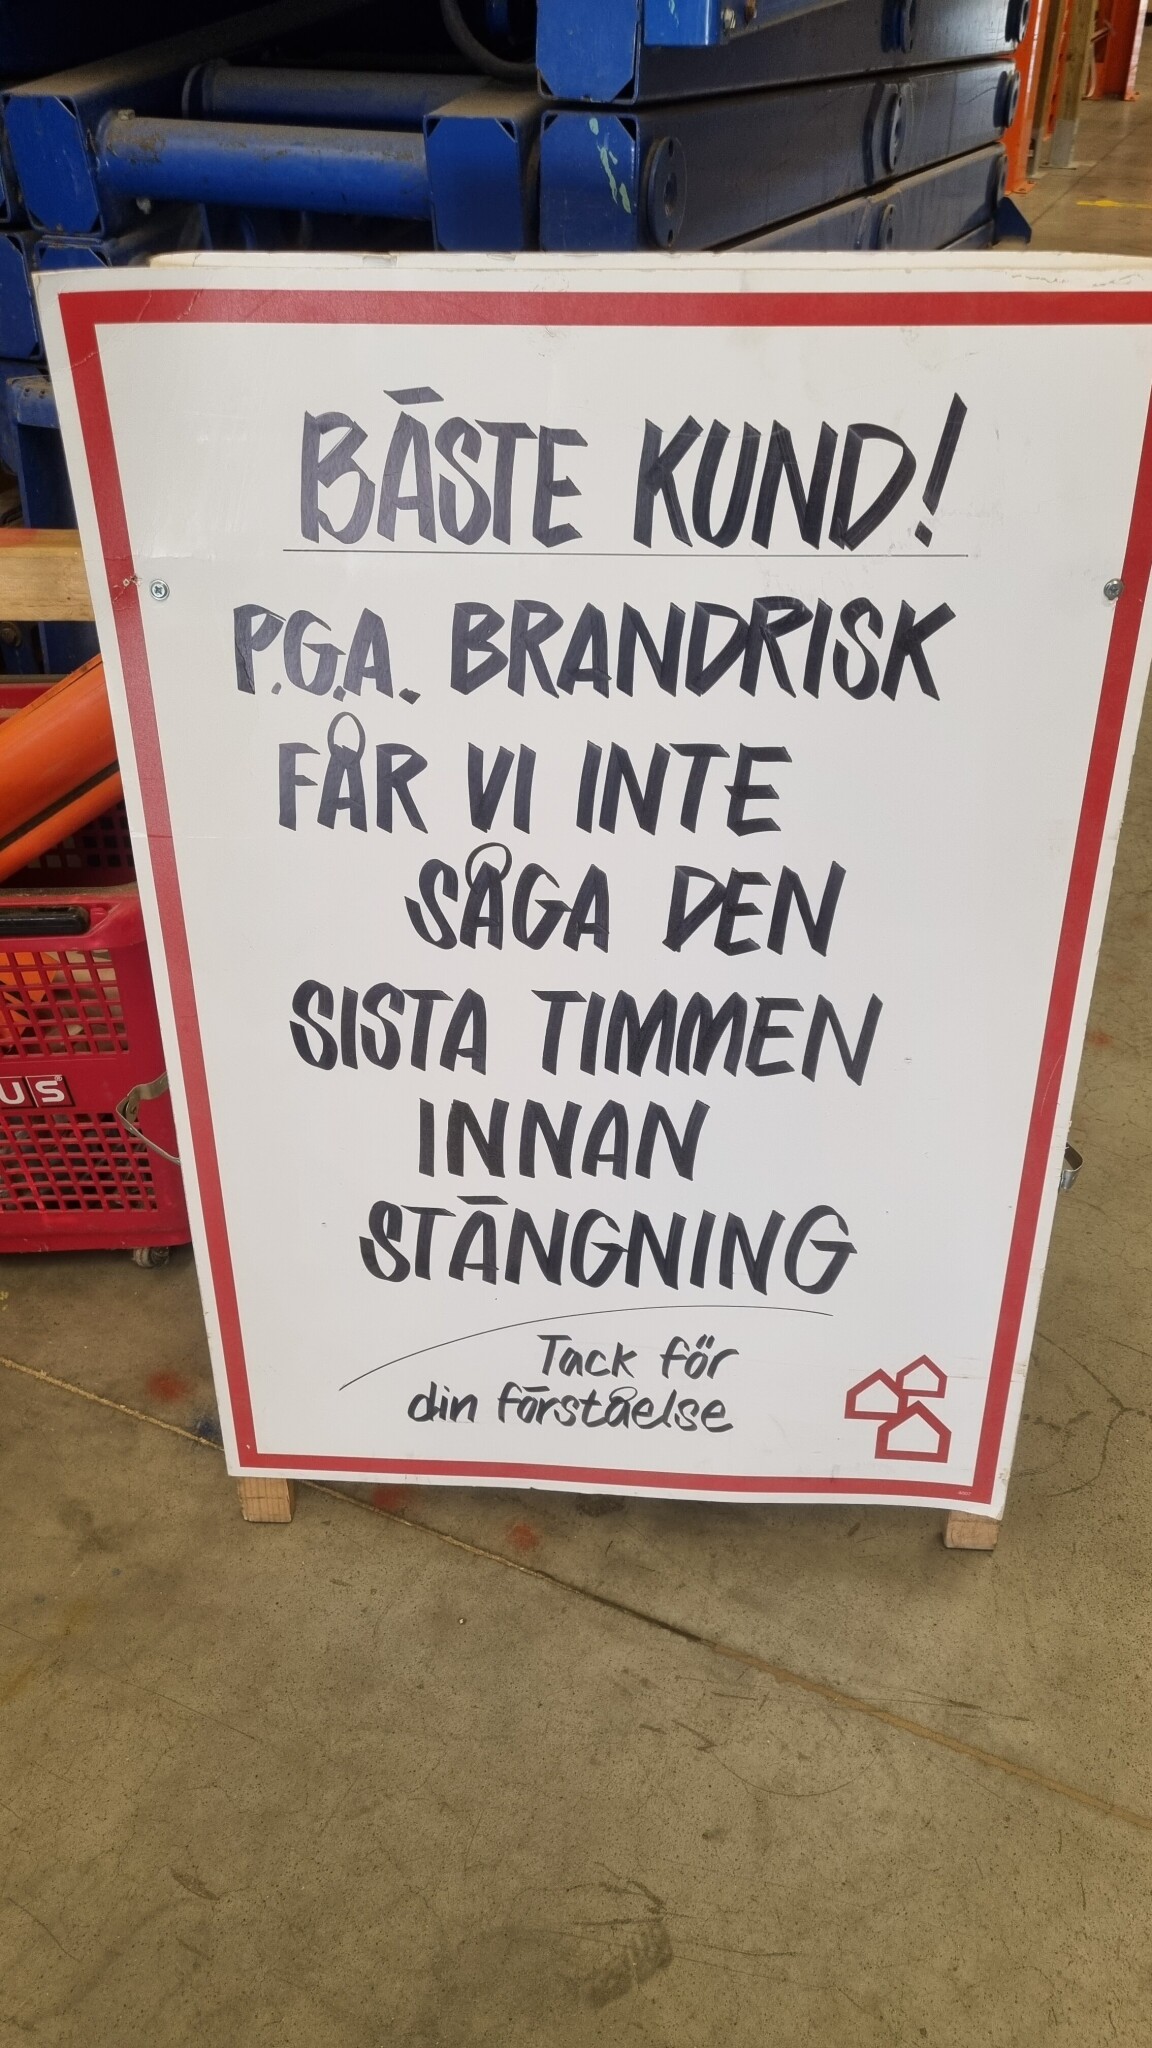 BÄSTE KUND!
P.G.A. BRANDRISK
FÅR VI INTE
SÅGA DEN
SISTA TIMMEN
INNAN
STÄNGNING
Tack för
din förståelse
US